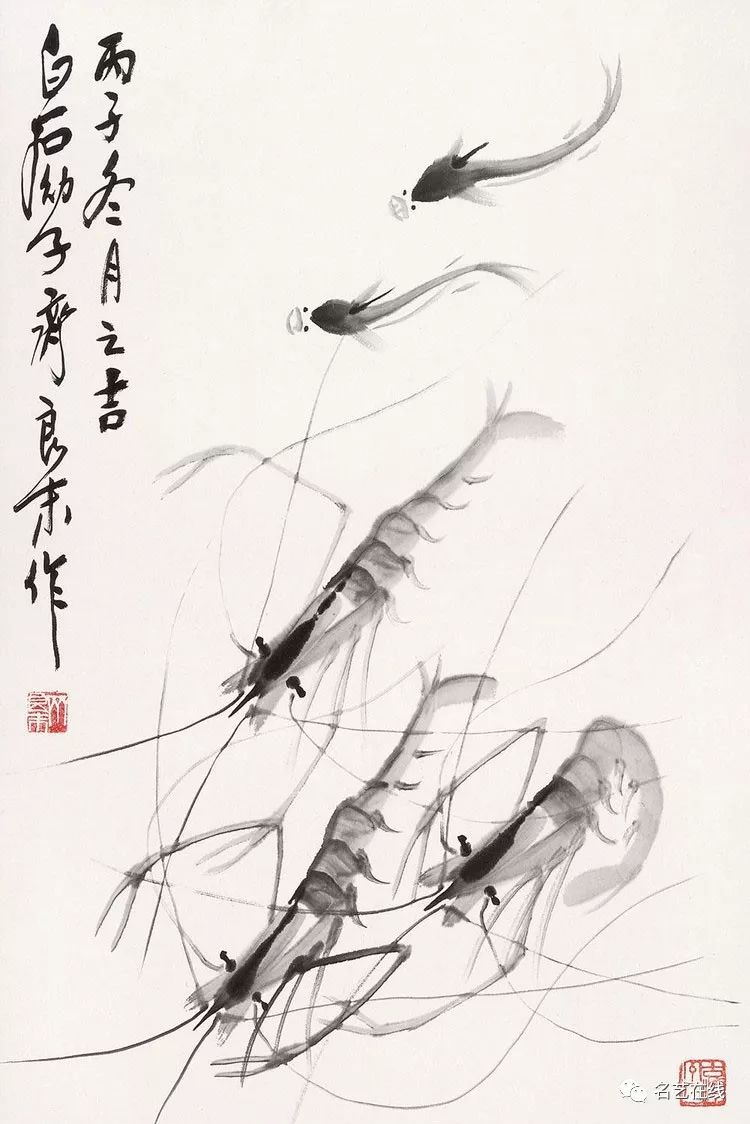 丙子冬月之吉
白石幼子齊良末作
名艺在线